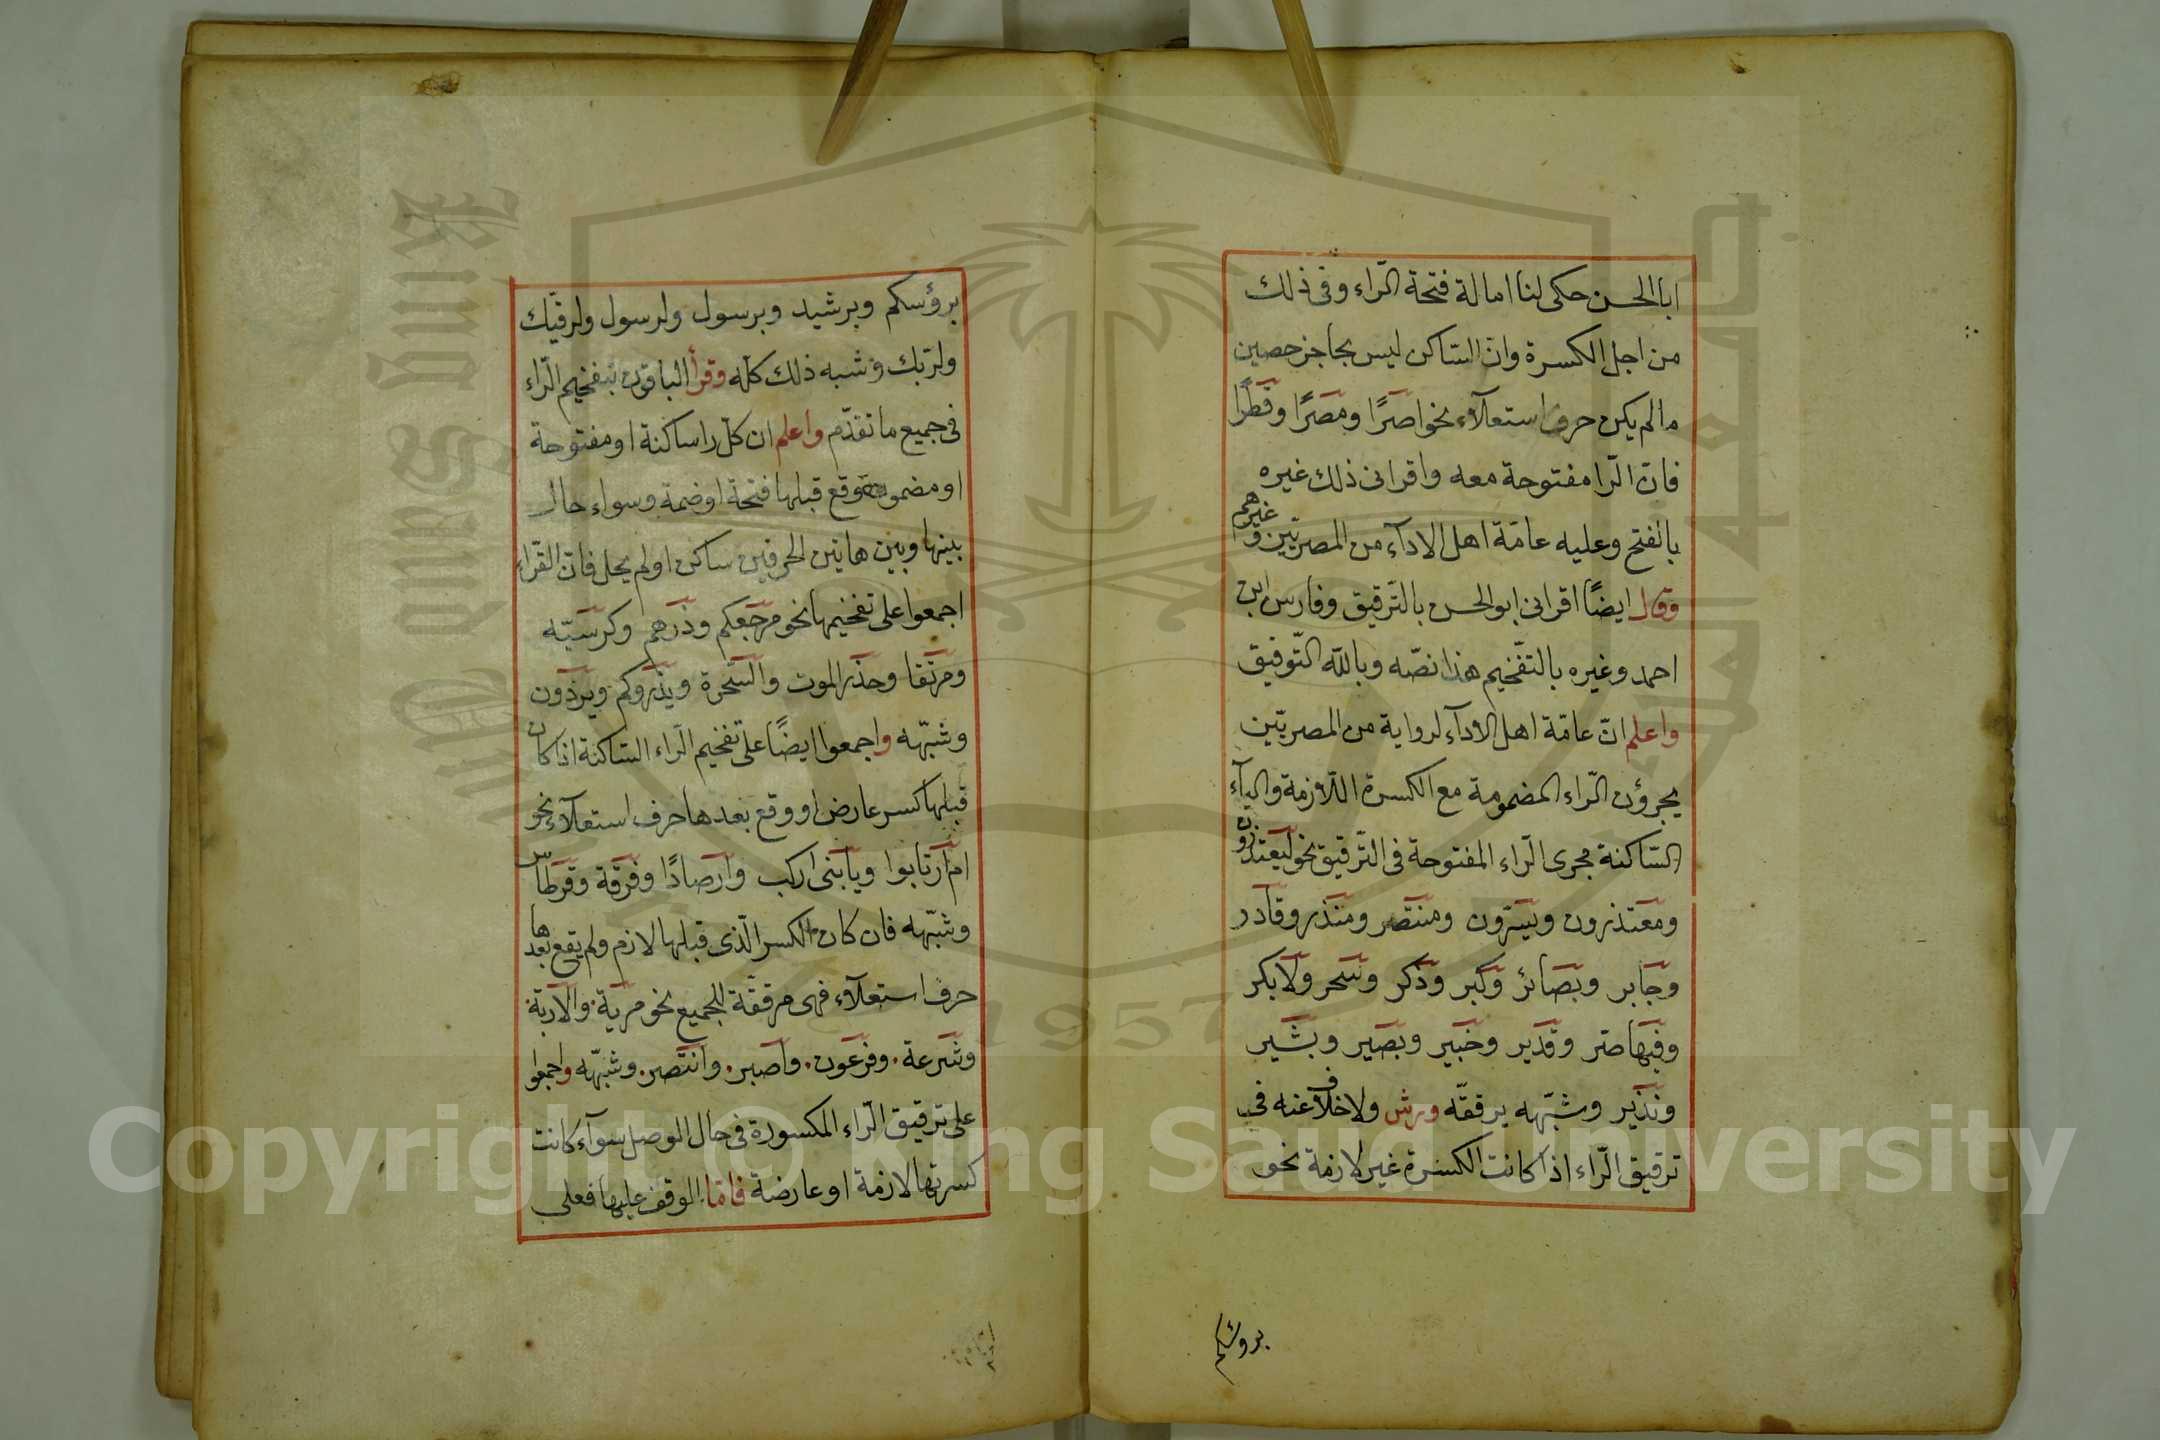 ابا الحسن حكى لنا امالة فتحة الرّاء وفى ذلك
من اجل الكسرة وانّ السّاكن ليس بحاجز حصين
مالم يكن حرف استعلآء نحو اصرًا ومصرًا وقطرًا
فانّ الرّا مفتوحة معه واقرانى ذلك غيره
بالفتح وعليه عامّة اهل الادآء من المصريّين وغيرهم
وقال ايضًا اقرانى ابو الحسن بالتّرقيق وفارس ابن
احمد وغيره بالتّفخيم هذا نصّه وبالله التّوفيق
واعلم انّ عامّة اهل الادآء لرواية من المصريّين
يجرؤن الرّاء المضمومة مع الكسرة اللّازمة واليآء
السّاكنة مجرى الرّاء المفتوحة فى التّرقيق نحو ليعتذرون
ومعتذرون ويبسّرون ومنتصر ومنذر وقادر
وجابر وبصائر وكبر وذكر وسحر ولا بكر
وفيها صر وقدير وخبير وبصير وبشير
ونذير وشبّهه يرققّه ورش ولا خلاف عنه فى
ترقيق الرّاء اذا كانت الكسرة غير لازمة نحو
بروئسكم
برؤسكم وبرشيد وبرسول ولرسول ولرقيّك
ولربّك وشبه ذلك كلّه وقرأ الباقون بتفخيم الرّاء
فى جميع ما تقدّم واعلم ان كلّ را ساكنة او مفتوحة
او مضمومة وقع قبلها فتحة او ضمة وسواء حال
بينها وبين هاتين الحرفين ساكن او لم يحل فانّ القرّاء
اجمعوا على تفخيمها نحو مرجعكم وذرهم وكرسيّه
ومرتفقا وحذر الموت والسّحرة ويذروكم ويرذون
وشبّهه واجمعوا ايضًا على تفخيم الرّاء السّاكنة اذا كان
قبلها كسر عارض او وقع بعدها حرف استعلآء نحو
ام ارتابوا ويابنى اركب وارصادًا وفرقة وقرطاس
وشبّهه فان كان الكسر الّذى قبلها لازم ولم يقع بعدها
حرف استعلآء فهى مرققّة للجميع نحو مرية والاربة
وشرعة. وفرعون. واصبر. وانتصر. وشبّهه واجمعوا
على ترقيق الرّاء المكسورة فى حال الوصل سوآء كانت
كسرتها لازمة او عارضة فامّا الوقف عليها فعلى
King Saud University
1957
Copyright © King Saud University